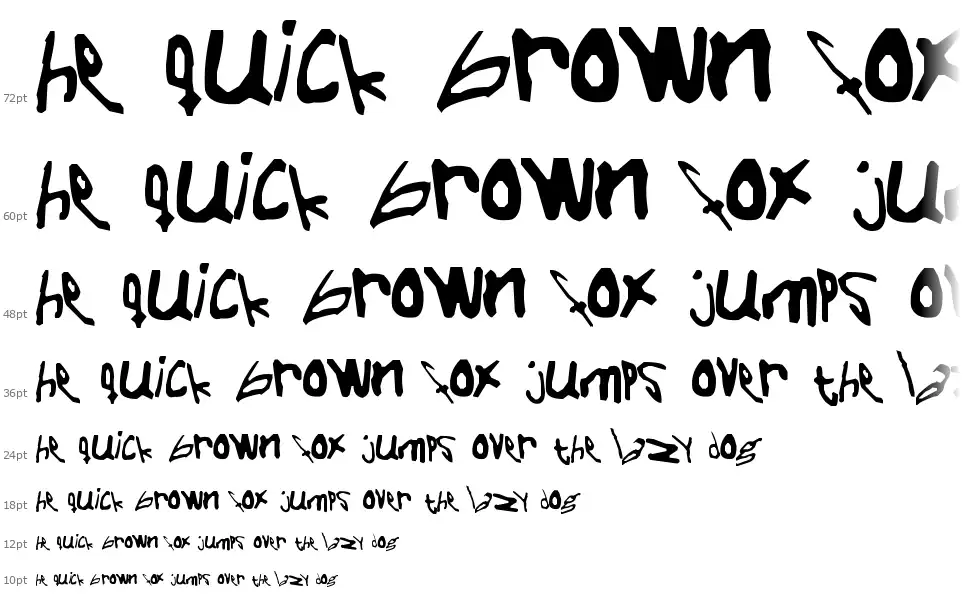 72pt he quick brown fox
60pt he quick brown fox jum
48pt he quick brown fox jumps ov
36pt he quick brown fox jumps over the laz
24pt he quick brown fox jumps over the lazy dog
18pt he quick brown fox jumps over the lazy dog
12pt he quick brown fox jumps over the lazy dog
10pt he quick brown fox jumps over the lazy dog